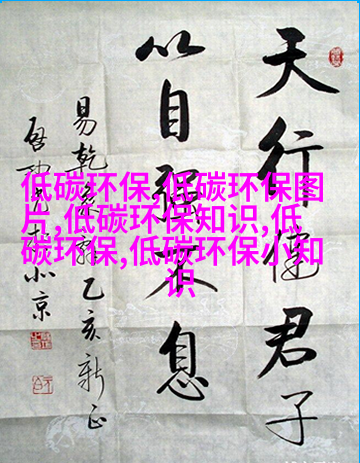 天行健君子
以自强不息
易乾象辞乙亥新正
低碳环保,低碳环保图
片,低碳环保知识,低
碳环保,低碳环保小知
识